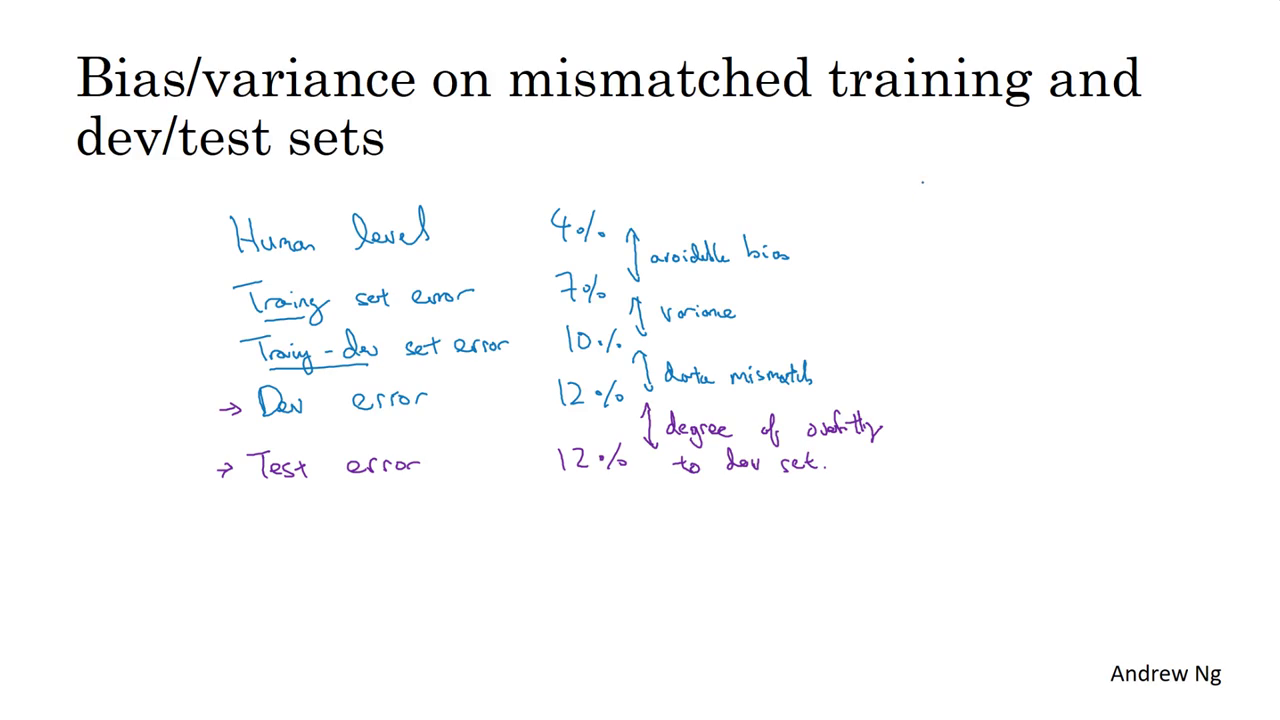 Bias/variance on mismatched training and
dev/test sets
Human level 4%
avoidable bias
Training set error 7%
variance
Training-dev set error 10%
data mismatch
→ Dev error 12%
degree of overfitting
→ Test error 12% to dev set.
Andrew Ng